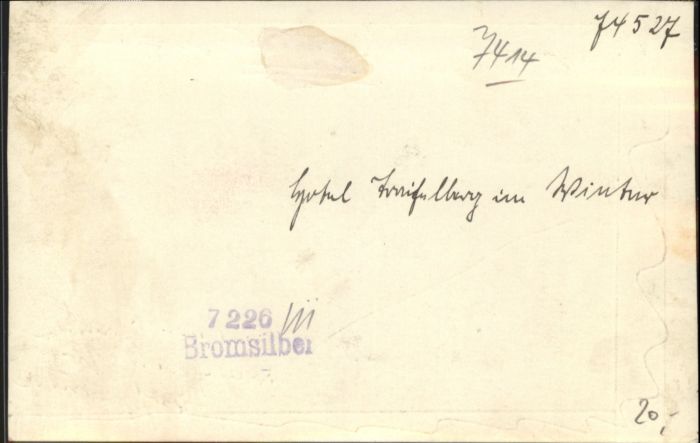 74527
7414
Hotel Traifelberg im Winter
7226 III
Bromsilber
20,-